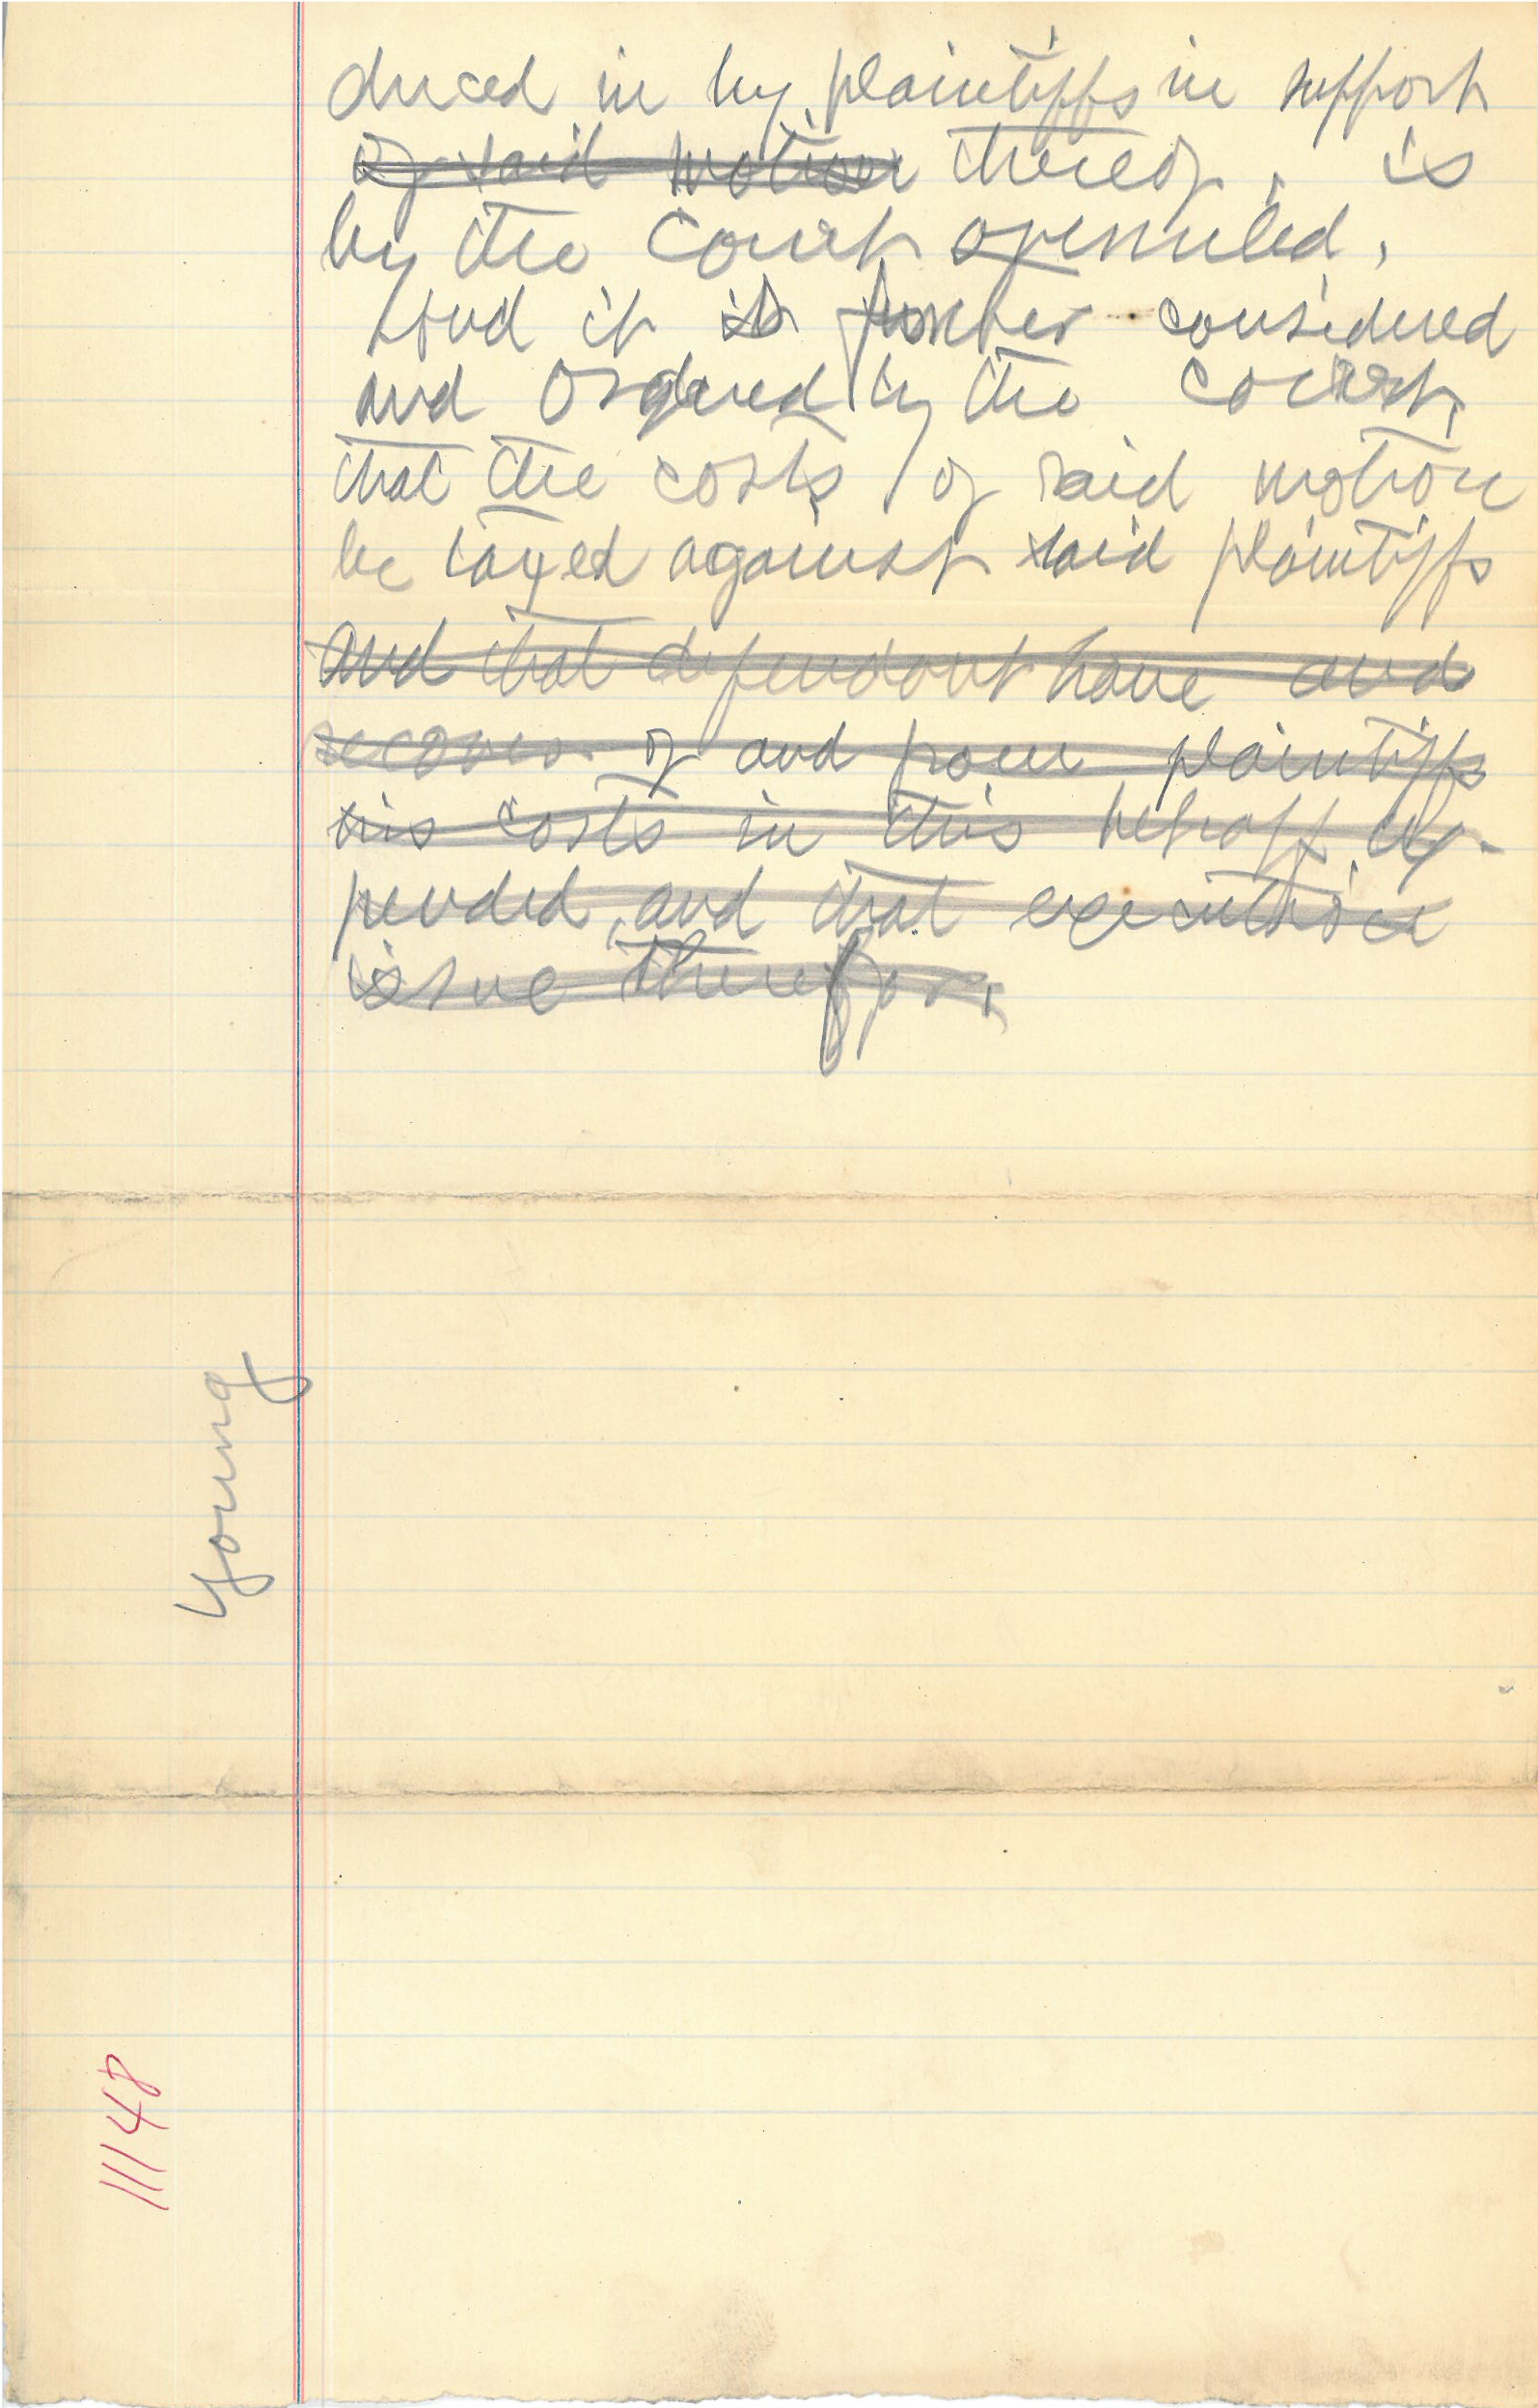 duced in by plaintiffs in support
of said motion thereof, is
by the Court overruled.
And it is further considered
and Ordered by the Court,
that the costs of said motion
be taxed against said plaintiffs
and that defendant have and
recover of and from plaintiffs
his costs in this behalf ex-
pended, and that execution
issue therefor.
Young
11148